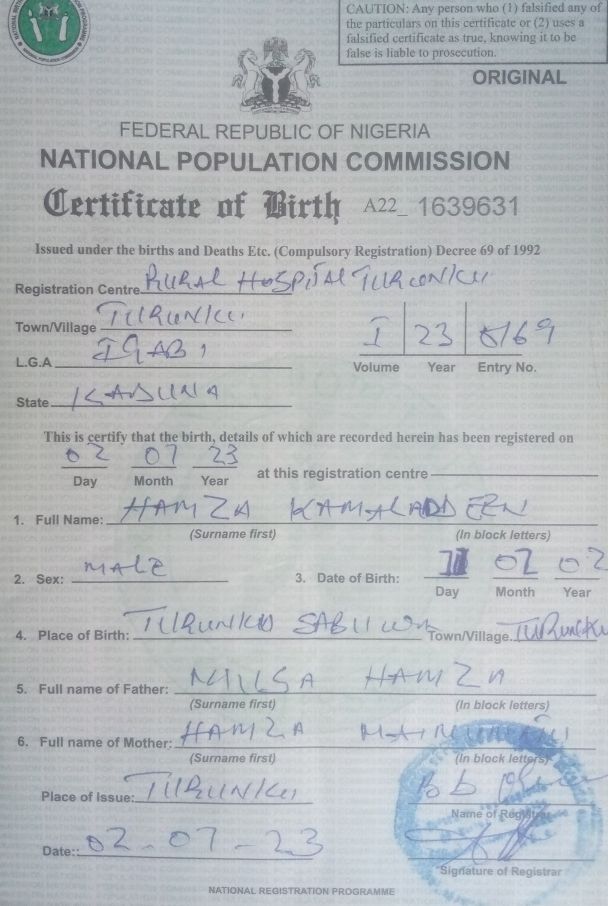 CAUTION: Any person who (1) falsified any of
the particulars on this certificate or (2) uses a
falsified certificate as true, knowing it to be
false is liable to prosecution.
ORIGINAL
FEDERAL REPUBLIC OF NIGERIA
NATIONAL POPULATION COMMISSION
Certificate of Birth A22_ 1639631
Issued under the births and Deaths Etc. (Compulsory Registration) Decree 69 of 1992
Registration Centre RURAL HOSPITAL TURUNKU
Town/Village TURUNKU
L.G.A IGABI
I 23 0169
Volume Year Entry No.
State KADUNA
This is certify that the birth, details of which are recorded herein has been registered on
02 07 23
Day Month Year at this registration centre
1. Full Name: HAMZA KAMALADDEEN
(Surname first) (In block letters)
2. Sex: MALE 3. Date of Birth: 02 02
Day Month Year
4. Place of Birth: TURUNKU SABUWA Town/Village. TURUNKU
5. Full name of Father: HAMZA
(Surname first) (In block letters)
6. Full name of Mother: HAMZA
(Surname first) (In block letters)
Place of Issue: TURUNKU
Name of Registrar
Date: 02-07-23
Signature of Registrar
NATIONAL REGISTRATION PROGRAMME